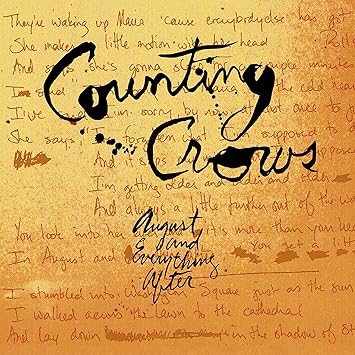 They're waking up Maria 'cause everybody else has got
She makes a little motion with her head
Counting
Crows
And says she's gonna s few minutes
I've I'm sorry by now
She says I'm supposed to
I'm getting older and older and older
And always a little further out of the wa
You look into her it's more than your hea
In August and get a littl
August
and
Everything
After
I stumbled into Washington Square just as the sun
I walked across the lawn to the cathedral
And lay down in the shadow of St